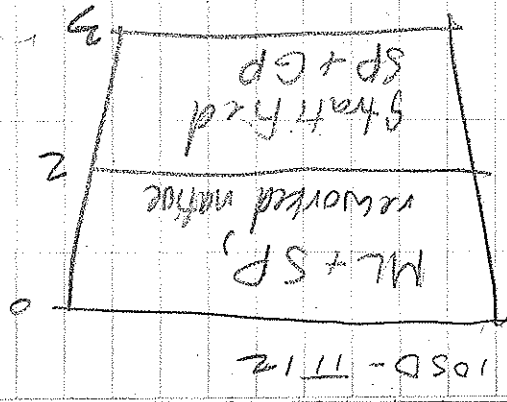 IOSD - TT 12
0
ML + SP,
reworked native
2
Stratified
SP + GP
3